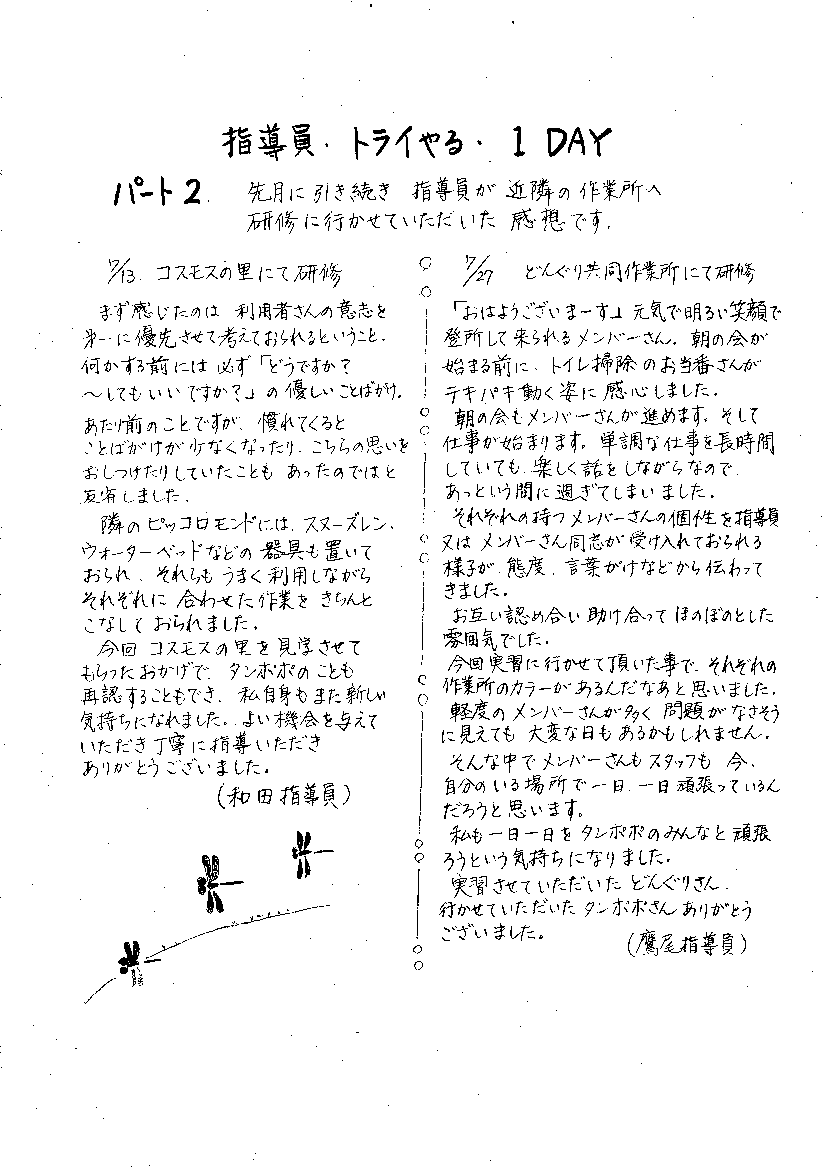 指導員・トライやる・1 DAY
パート2. 先月に引き続き 指導員が 近隣の作業所へ
研修に行かせていただいた 感想です.
7/13. コスモスの里にて研修
まず感じたのは 利用者さんの意志を
第一に優先させて考えておられるということ.
何かする前には必ず「どうですか?
〜してもいいですか?」の優しいことばがけ.
あたり前のことですが、慣れてくると
ことばがけが少なくなったり、こちらの思いを
おしつけたりしていたことも あったのではと
反省しました.
隣のピッコロモンドには、スヌーズレン、
ウォーターベッドなどの器具も置いて
おられ、それらもうまく利用しながら
それぞれに 合わせた作業を きちんと
こなしておられました.
今回 コスモスの里を見学させて
もらったおかげで、タンポポのことも
再認することもでき、私自身もまた新しい
気持ちになれました. よい機会を与えて
いただき丁寧に指導いただき
ありがとうございました。
(和田指導員)
7/27 どんぐり共同作業所にて研修
「おはようございまーす」元気で明るい笑顔で
登所して来られるメンバーさん. 朝の会が
始まる前に、トイレ掃除のお当番さんが
テキパキ動く姿に感心しました.
朝の会もメンバーさんが進めます. そして
仕事が始まります. 単調な仕事を長時間
していても、楽しく話をしながらなので、
あっという間に過ぎてしまいました.
それぞれの持つメンバーさんの個性を指導員
又は メンバーさん同志が 受け入れておられる
様子が、態度、言葉がけなどから伝わって
きました.
お互い認め合い助け合って ほのぼのとした
雰囲気でした.
今回実習に行かせて頂いた事で、それぞれの
作業所のカラーがあるんだなあと思いました.
軽度のメンバーさんが多く 問題がなさそう
に見えても 大変な日もあるかもしれません.
そんな中でメンバーさんもスタッフも 今、
自分のいる場所で一日、一日頑張っているん
だろうと思います。
私も一日一日をタンポポのみんなと頑張
ろうという気持ちになりました.
実習させていただいた どんぐりさん、
行かせていただいた タンポポさん ありがとう
ございました。
(鷹尾指導員)